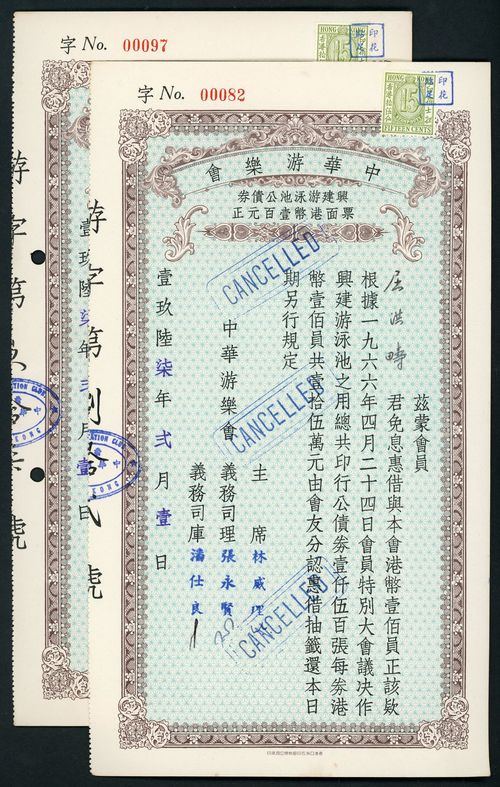 字 No. 00097
HONG KONG
15
壹玖陸柒年
月壹日
號
字 No. 00082
HONG KONG
15
FIFTEEN CENTS
印花
中華游樂會
興建游泳池公債券
票面港幣壹百元正
茲蒙會員
君免息惠借與本會港幣壹佰員正該款
根據一九六六年四月二十四日會員特別大會議決作
興建游泳池之用總共印行公債券壹仟伍百張每券港
幣壹佰員共壹拾伍萬元由會友分認惠借抽籤還本日
期另行規定
中華游樂會
主席 林威
義務司理 張永賢
義務司庫 潘仕良
壹玖陸柒年貳月壹日
游字第
號
CANCELLED
CANCELLED
CANCELLED